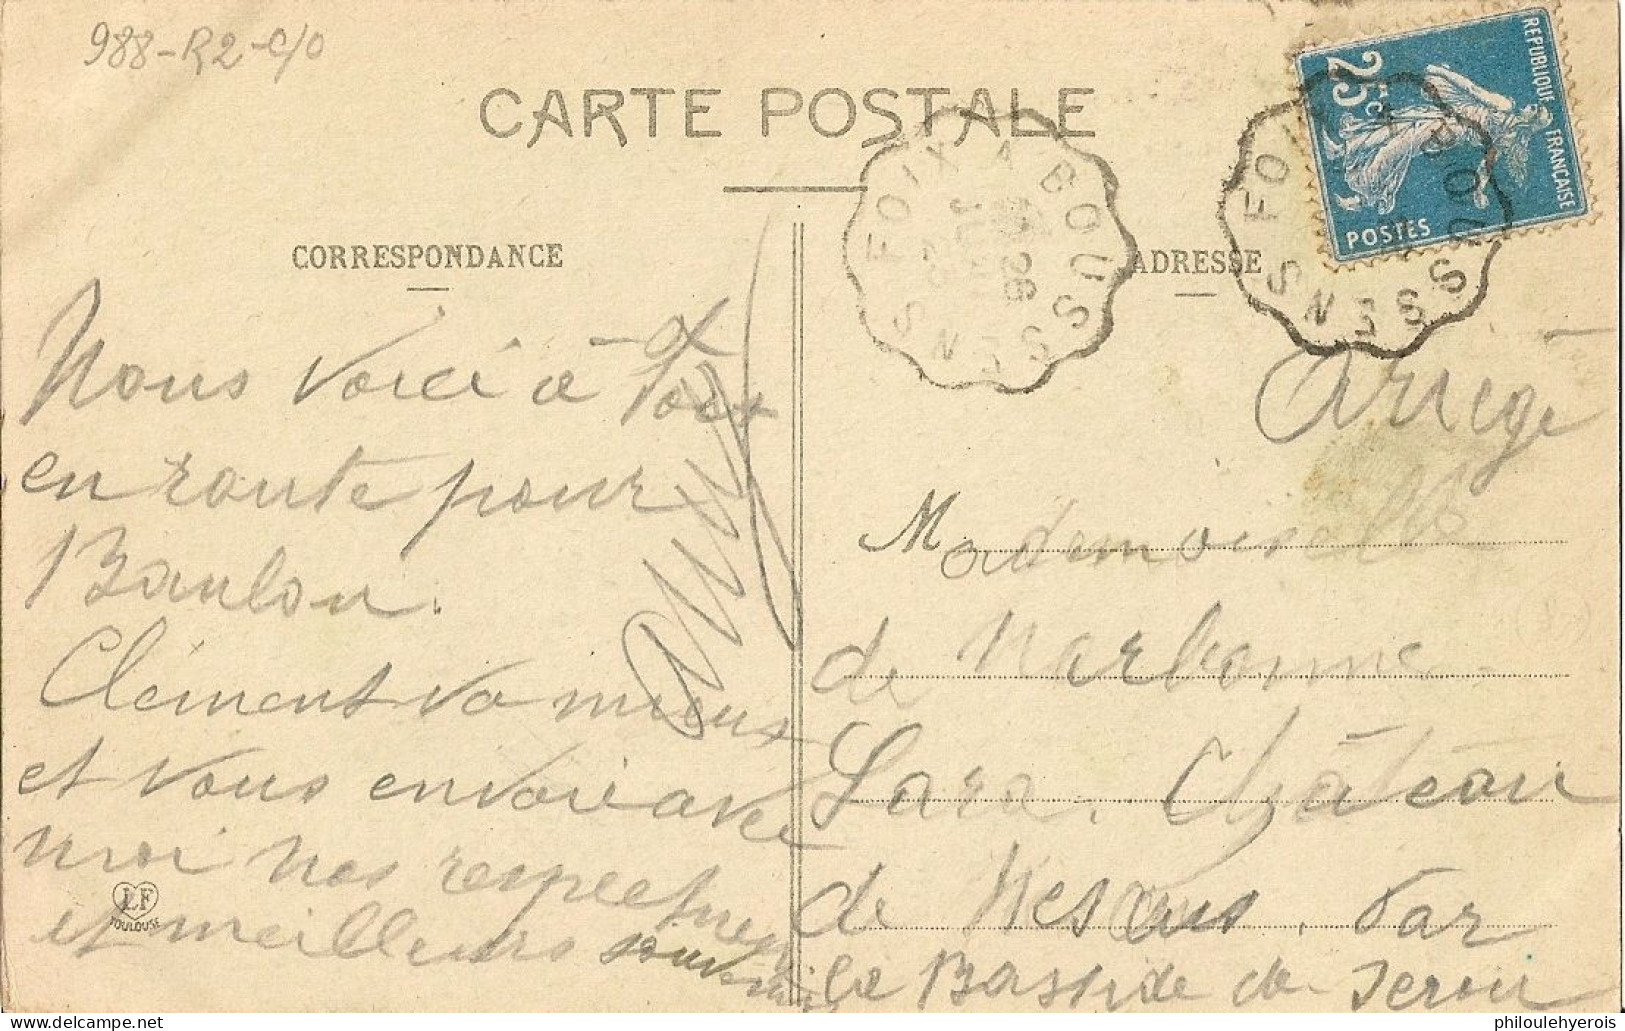 988-R2-c/o
CARTE POSTALE
REPUBLIQUE FRANÇAISE
25c
POSTES
FOIX A BOUSSENS
FOIX A BOUSSENS
26
CORRESPONDANCE
ADRESSE
Nous voici à Foix
en route pour
Boulou.
Clément va mieux
et vous envoie avec
moi nos respectueux
et meilleurs souvenirs
Ariège
Mademoiselle
de Narbonne
Lara. Château
de Nescus. Par
la Bastide de Serou
LF
TOULOUSE
delcampe.net
philoulehyerois